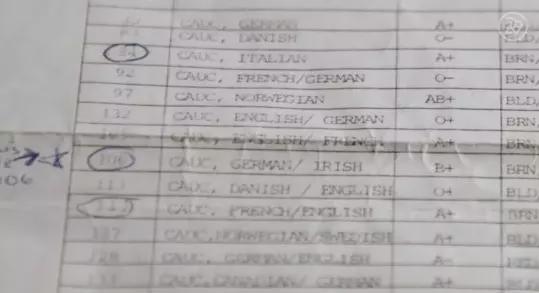 CAUC, GERMAN A+
CAUC, DANISH O- BLD
CAUC, ITALIAN A+ BRN
92 CAUC, FRENCH/GERMAN O- BRN
97 CAUC, NORWEGIAN AB+ BLD
132 CAUC, ENGLISH/ GERMAN O+ BRN
CAUC, ENGLISH/ FRENCH A+ BRN
106 CAUC, GERMAN/ IRISH B+ BRN
CAUC, DANISH / ENGLISH O+ BLD
CAUC, FRENCH/ENGLISH A+ BRN
CAUC,NORWEGIAN/SWEDISH A+ BLD
CAUC, GERMAN/ENGLISH
CAUC,CANADIAN/ GERMAN A+